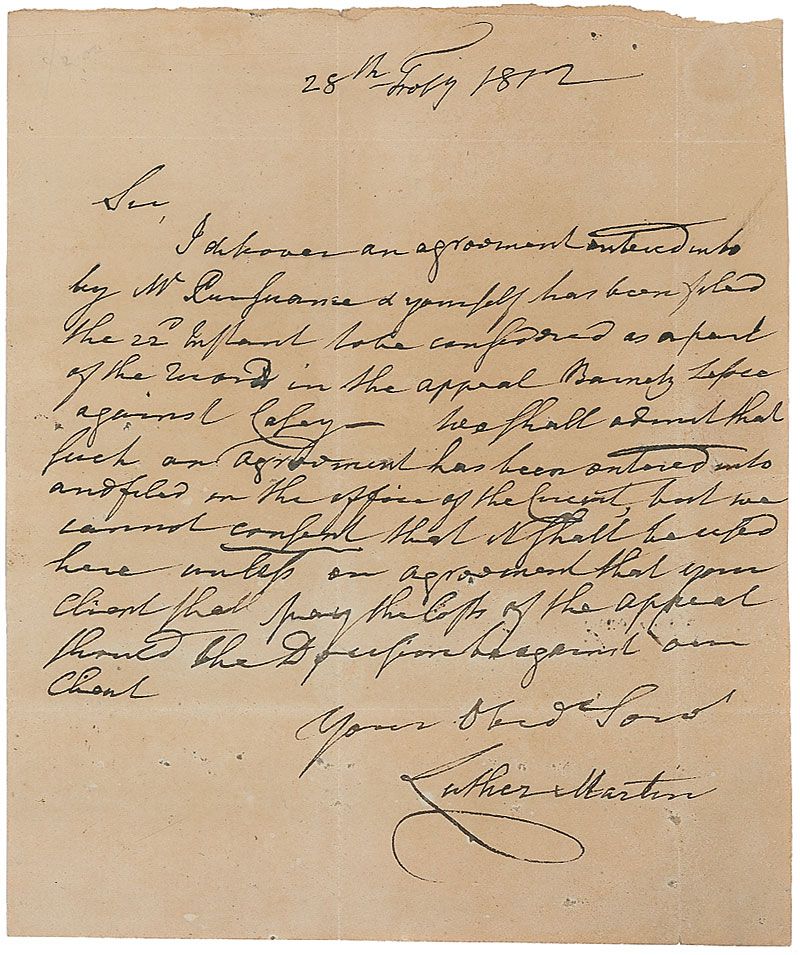 28th Feby 1812
Sir,
I discover an agreement entered into
by Mr Purviance & yourself has been filed
the 22d Instant to be considered as a part
of the record in the appeal Barnetz Lessee
against Casey — We shall admit that
such an agreement has been entered into
and filed in the office of the Circuit, but we
cannot consent that it shall be used
here unless on agreement that your
Client shall pay the Costs of the appeal
should the Decision be against our
Client
Your Obedt Servt
Luther Martin